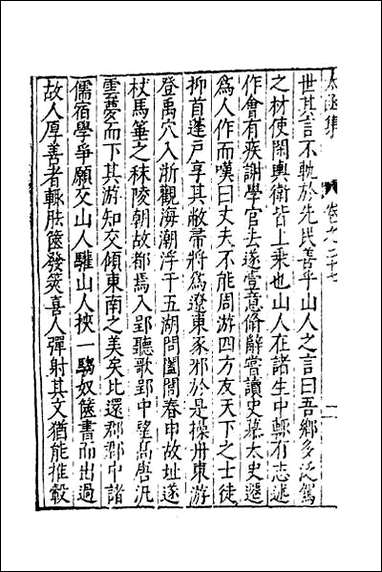 太函集 卷之二十七 一
世其言不軌於先民善乎山人之言曰吾鄉多泛駕
之材使閑輿衛皆上乘也山人在諸生中輒有志述
作會有疾謝學官去遂壹意脩辭嘗讀史慕太史遷
爲人作而嘆曰丈夫不能周游四方友天下之士徒
抑首蓬戶享其敝帚將爲遼東豕邪於是操舟東游
登禹穴入浙觀海潮浮于五湖問闔閭春申故址遂
杖馬箠之秣陵朝故都焉入郢聽歌郢中望高唐汎
雲夢而下其游知交傾東南之美矣比還郡郡中諸
儒宿學爭願交山人驩山人挾一騶奴篋書而出過
故人厚善者輒胠篋發筴喜人彈射其文猶能推轂